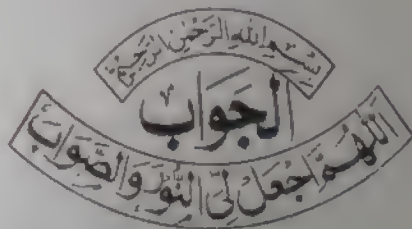 بِسْمِ اللهِ الرَّحْمٰنِ الرَّحِيْمِ
الجَوَاب
اَللّٰهُمَّ اجْعَلْ لِّیَ النُّوْرَ وَالصَّوَابَ